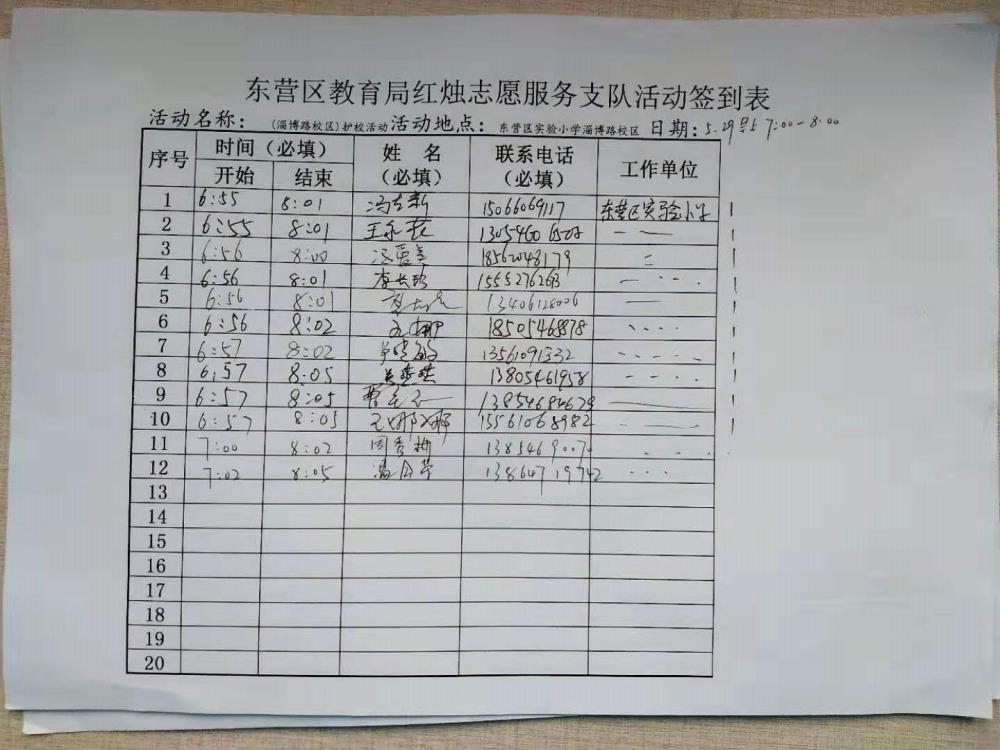 东营区教育局红烛志愿服务支队活动签到表
活动名称：(淄博路校区)护校活动 活动地点：东营区实验小学淄博路校区 日期：5.29 7:00-8:00
序号 时间（必填） 姓 名（必填） 联系电话（必填） 工作单位
开始 结束
1 6:55 8:01 15066069117 东营区实验小学
2 6:55 8:01
3 6:56 8:00 18562048179
4 6:56 8:01 15552762613
5 6:56 8:01 13406128006
6 6:56 8:02 18505468878
7 6:57 8:02
8 6:57 8:05 13805461958
9 6:57 8:05 13854684679
10 6:57 8:05 王娜娜 15561068982
11 7:00 8:02 周秀梅
12 7:02 8:05 13864719742
13
14
15
16
17
18
19
20